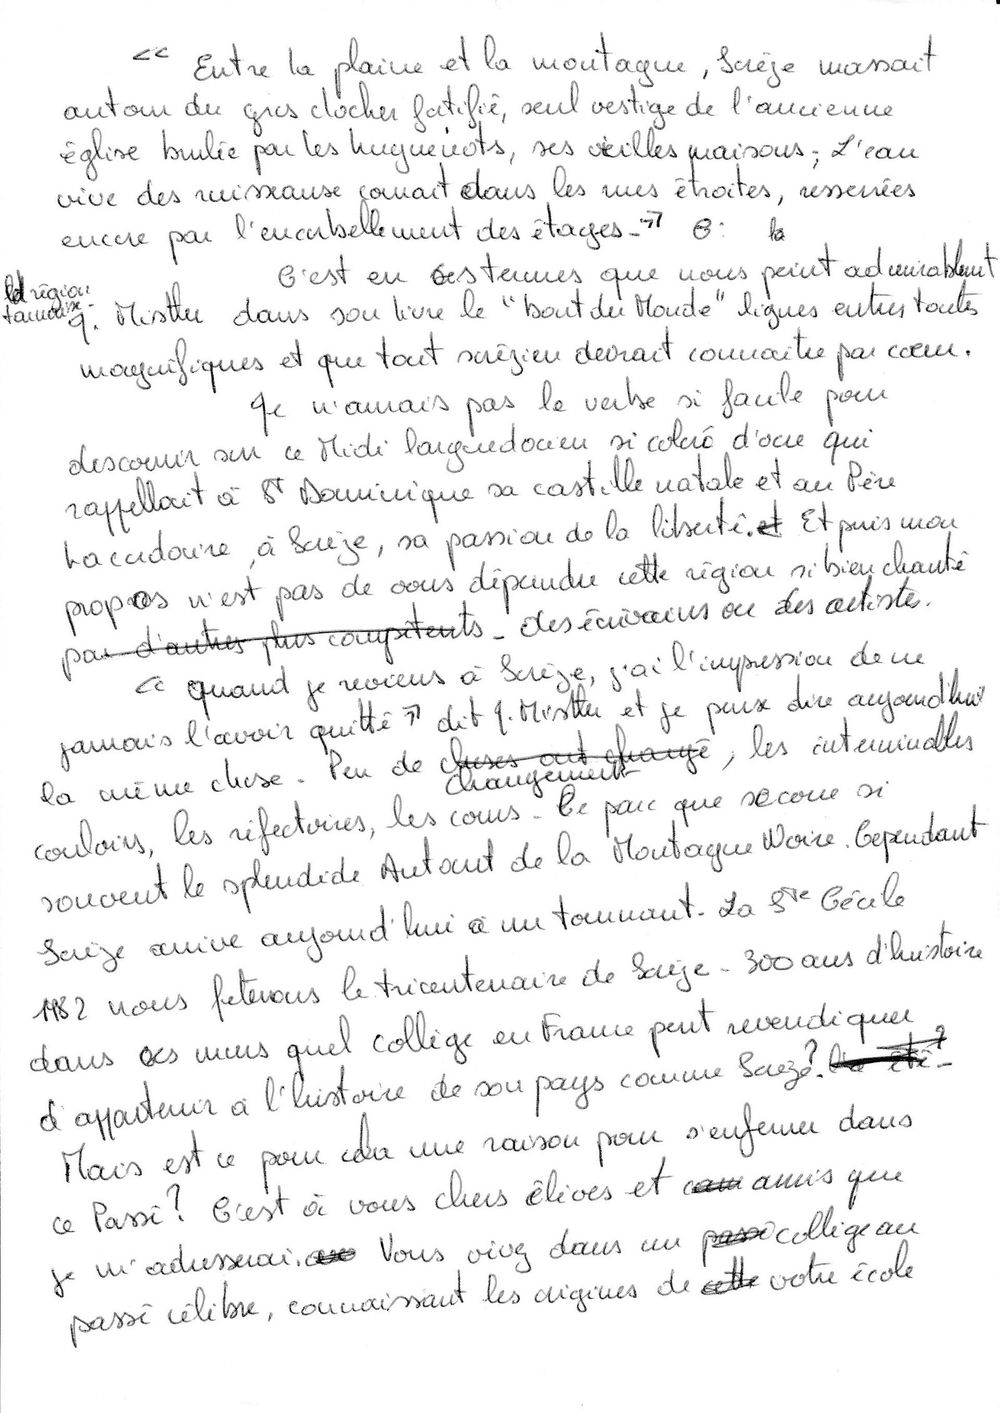 « Entre la plaine et la montagne, Sorèze massait
autour du gros clocher fortifié, seul vestige de l'ancienne
église brulée par les huguenots, ses vieilles maisons; L'eau
vive des ruisseaux courait dans les rues étroites, resserrées
encore par l'encorbellement des étages - » C: la
C'est en ces termes que nous peint admirablement
la région
tarnaise -
J. Mistler dans son livre le "Bout du Monde" lignes entre toutes
magnifiques et que tout sorézien devrait connaitre par cœur.
Je n'aurais pas le verbe si facile pour
discourir sur ce Midi languedocien si coloré d'ocre qui
rappellait à St Dominique sa castille natale et au Père
Lacordaire, à Sorèze, sa passion de la liberté. et Et puis mon
propos n'est pas de vous dépeindre cette région si bien chanté
par d'autres plus compétents - des écrivains ou des artistes.
« Quand je reviens à Sorèze, j'ai l'impression de ne
jamais l'avoir quitté » dit J. Mistler et je peux dire aujourd'hui
la même chose - Peu de choses ont changé, les interminables
changement
couloirs, les réfectoires, les cours - Ce parc que secoue si
souvent le splendide Autant de la Montagne Noire. Cependant
Sorèze arrive aujourd'hui à un tournant - La Ste Cécile
1982 nous feterons le tricentenaire de Sorèze - 300 ans d'histoire
dans ces murs quel collège en France peut revendiquer
d'appartenir à l'histoire de son pays comme Sorèze?
Mais est ce pour cela une raison pour s'enfermer dans
ce Passé? C'est à vous chers élèves et amis que
je m'adresserai. Vous vivez dans un passé collège au
passé célèbre, connaissant les origines de cette votre école